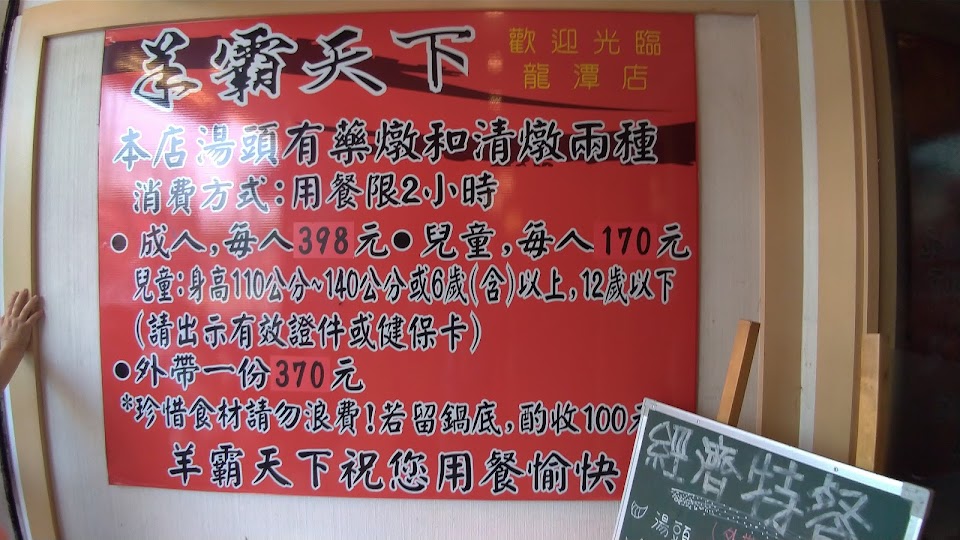 羊霸天下
歡迎光臨
龍潭店
本店湯頭有藥燉和清燉兩種
消費方式:用餐限2小時
●成人,每人398元●兒童,每人170元
兒童:身高110公分~140公分或6歲(含)以上,12歲以下
(請出示有效證件或健保卡)
●外帶一份370元
*珍惜食材請勿浪費!若留鍋底,酌收100元
羊霸天下祝您用餐愉快
經濟特餐
湯頭